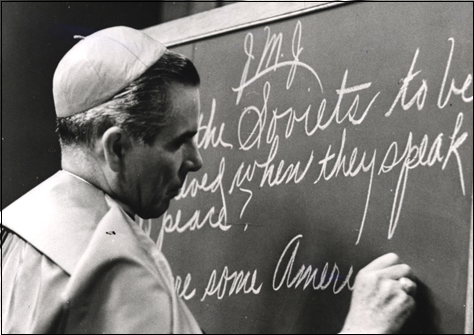 J.M.J
the Soviets to be
ieved when they speak
peace?
re some Ameri